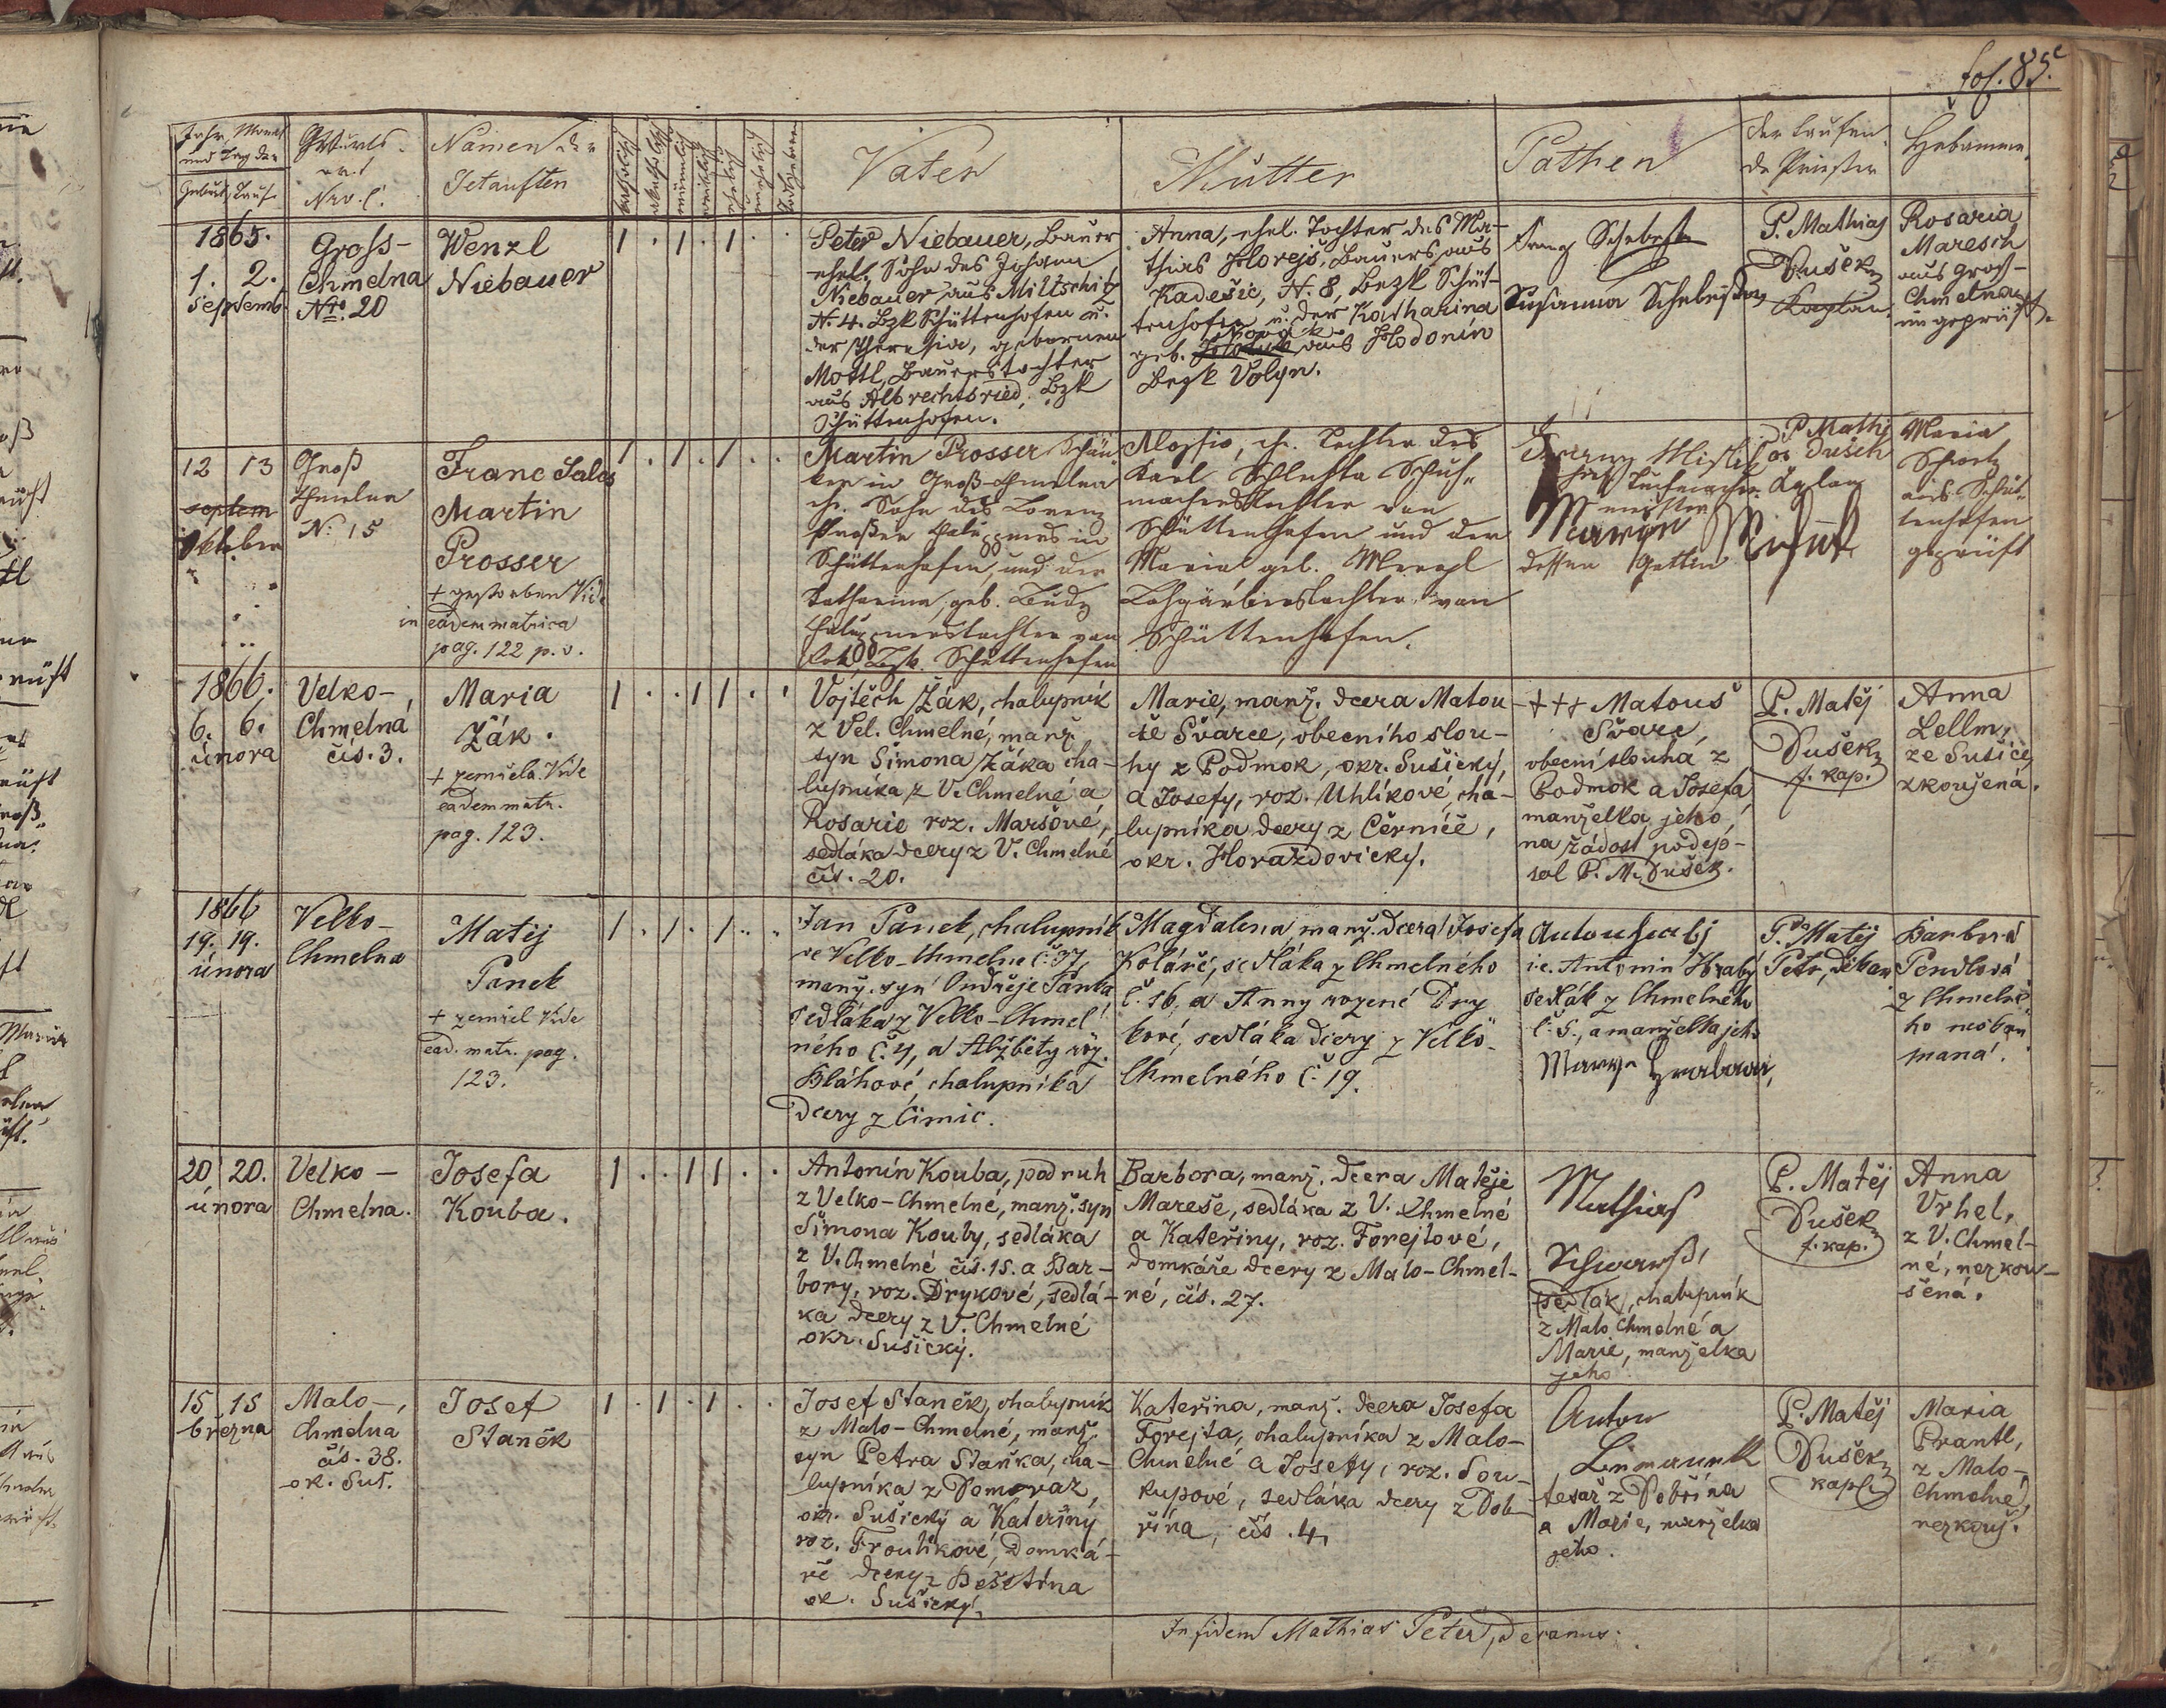 fol. 85.
Jahr, Monat
und Tag der
Geburt, Taufe
Geburts-
ort
Nro. C.
Namen der
Getauften
katholisch
akatholisch
männlich
weiblich
ehelich
unehelich
Vater
Mutter
Pathen
der taufende
Priester
Hebamme
1865.
1. 2.
Septemb.
Gross-
Chmelna
Nro. 20
Wenzl
Niebauer
1 . 1 . 1 . .
Peter Niebauer, Bauer
ehel. Sohn des Johann
Niebauer aus Miltschitz
N. 4. Bzk Schüttenhofen u.
der Theresia, gebornen
Mottl, Bauerstochter
aus Albrechtsried, Bzk
Schüttenhofen.
Anna, ehel. Tochter des Ma-
thias Horejš, Bauers aus
Kadešic, N. 8, Bezk Schüt-
tenhofen u. der Katharina
geb. aus Hodonín
Bezk Volyn.
Susanna
P. Mathias
Dušek
Kaplan
Rosaria
Maresch
aus Groß-
Chmelna
ungeprüft.
12 13
septem
Oktober
Groß
Chmelna
N. 15
Franc Sales
Martin
Prosser
+ gestorben Vide
in eadem matrica
pag. 122 p. v.
1 . 1 . 1 . .
Martin Prosser
in Groß-Chmelna
eh. Sohn des Lorenz
Proßer in
Schüttenhofen, und der
Katharina, geb.
von
Bzk. Schüttenhofen
Aloysia, eh. Tochter des
Karl Schlechta Schuh-
machers Tochter von
Schüttenhofen und der
Maria geb.
Lohgärberstochter von
Schüttenhofen.
dessen Gattin
P. Mathi
as Dušek
Kaplan
Maria
aus Schüt-
tenhofen
geprüft
1866.
6. 6.
února
Velko-
Chmelná
čís. 3.
Maria
Žák.
+ zemřela. Vide
eadem matr.
pag. 123.
1 . . 1 1 . .
Vojtěch Žák, chalupník
z Vel. Chmelné, manž.
syn Šimona Žáka cha-
lupníka z V. Chmelné a
Rosarie roz. Maršové,
sedláka dcery z V. Chmelné
čís. 20.
Marie, manž. dcera Matou-
še Švarce, obecního slou-
hy z Podmok, okr. Sušický,
a Josefy, roz. Uhlíkové, cha-
lupníka dcery z Černíče,
okr. Horažďovický.
+++ Matouš
Švarc,
obecní slouha z
Podmok a Josefa,
manželka jeho,
na žádost podep-
sal P. M. Dušek.
P. Matěj
Dušek
f. kap.
Anna
Lellm,
ze Sušice,
zkoušená.
1866
19. 19.
února
Velko-
Chmelna
Matěj
Panek
+ zemřel Vide
ead. matr. pag.
123.
1 . 1 . 1 . .
Jan Panek, chalupník
ve Velko-Chmelné č. 37,
manž. syn Ondřeje Panka
sedláka z Velko-Chmel-
ného č. 4, a Alžběty roz.
Bláhové, chalupníka
dcery z Čimic.
Magdalena, manž. dcera Josefa
Koláře, sedláka z Chmelného
č. 16, a Anny rozené Dry-
kové, sedláka dcery z Velko-
Chmelného č. 19.
i.e. Antonín Hrabý
sedlák z Chmelného
č. 5., a manželka jeho
P. Matěj
Petr, děkan
Barbora
Pendlová
z Chmelné-
ho nezkou
maná.
20 20.
února
Velko-
Chmelna.
Josefa
Kouba.
1 . . 1 1 . .
Antonín Kouba, podruh
z Velko-Chmelné, manž. syn
Šimona Kouby, sedláka
z V. Chmelné čís. 15. a Bar-
bory, roz. Drykové, sedlá-
ka dcery z V. Chmelné
okr. Sušický.
Barbora, manž. dcera Matěje
Mareše, sedláka z V. Chmelné
a Kateřiny, roz. Forejtové,
domkáře dcery z Malo-Chmel-
né, čís. 27.
Mathias
sedlák, chalupník
z Malo Chmelné a
Marie, manželka
jeho
P. Matěj
Dušek
f. kap.
Anna
Vrhel,
z V. Chmel-
né, nezkou-
šená.
15 15
března
Malo-
Chmelna
čís. 38.
ok. Suš.
Josef
Staněk
1 . 1 . 1 . .
Josef Staněk, chalupník
z Malo-Chmelné, manž.
syn Petra Staňka, cha-
lupníka z Domoraz,
okr. Sušický a Kateřiny
roz. Froulíkové, domká-
ře dcery z Bešetína
ok. Sušický.
Kateřina, manž. dcera Josefa
Forejta, chalupníka z Malo-
Chmelné a Josefy, roz. Sou-
kupové, sedláka dcery z Dob-
řína, čís. 4,
Anton
tesař z Dobřína
a Marie, manželka
jeho.
P. Matěj
Dušek
kapl.
Maria
Prantl,
z Malo-
Chmelné,
nezkouš.
In fidem Mathias Peter, decanus.